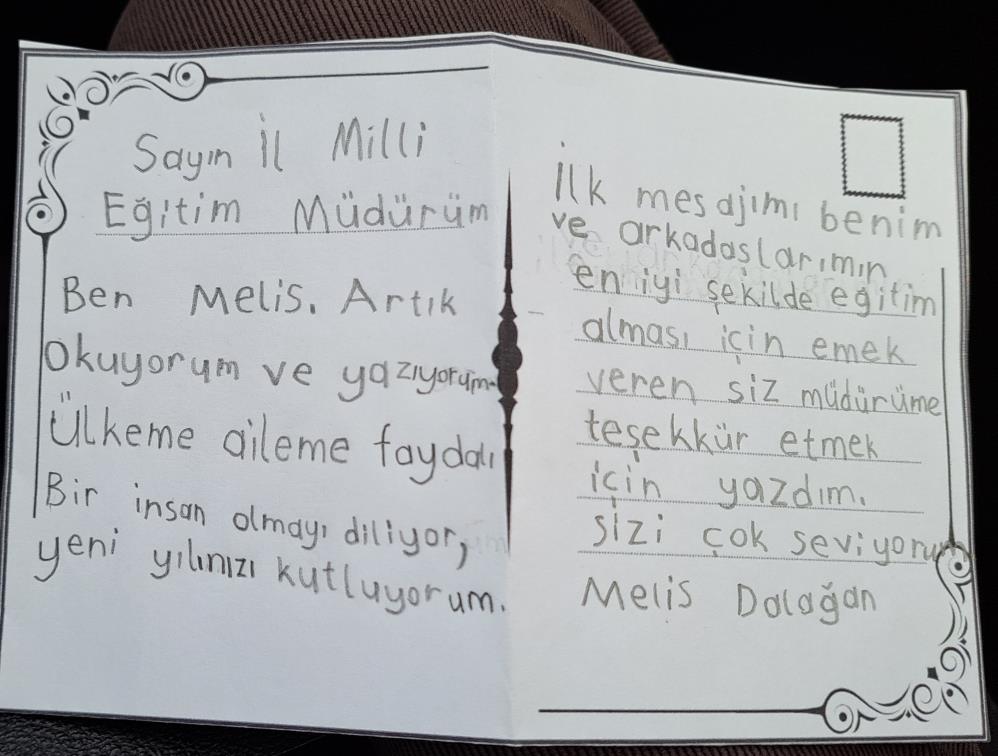 Sayın İl Milli
Eğitim Müdürüm
Ben Melis. Artık
Okuyorum ve yazıyorum.
Ülkeme aileme faydalı
Bir insan olmayı diliyor,
yeni yılınızı kutluyorum.
İlk mesajımı benim
ve arkadaslarımın
en iyi şekilde eğitim
alması için emek
veren siz müdürüme
teşekkür etmek
için yazdım.
sizi çok seviyorum
Melis Dalağan